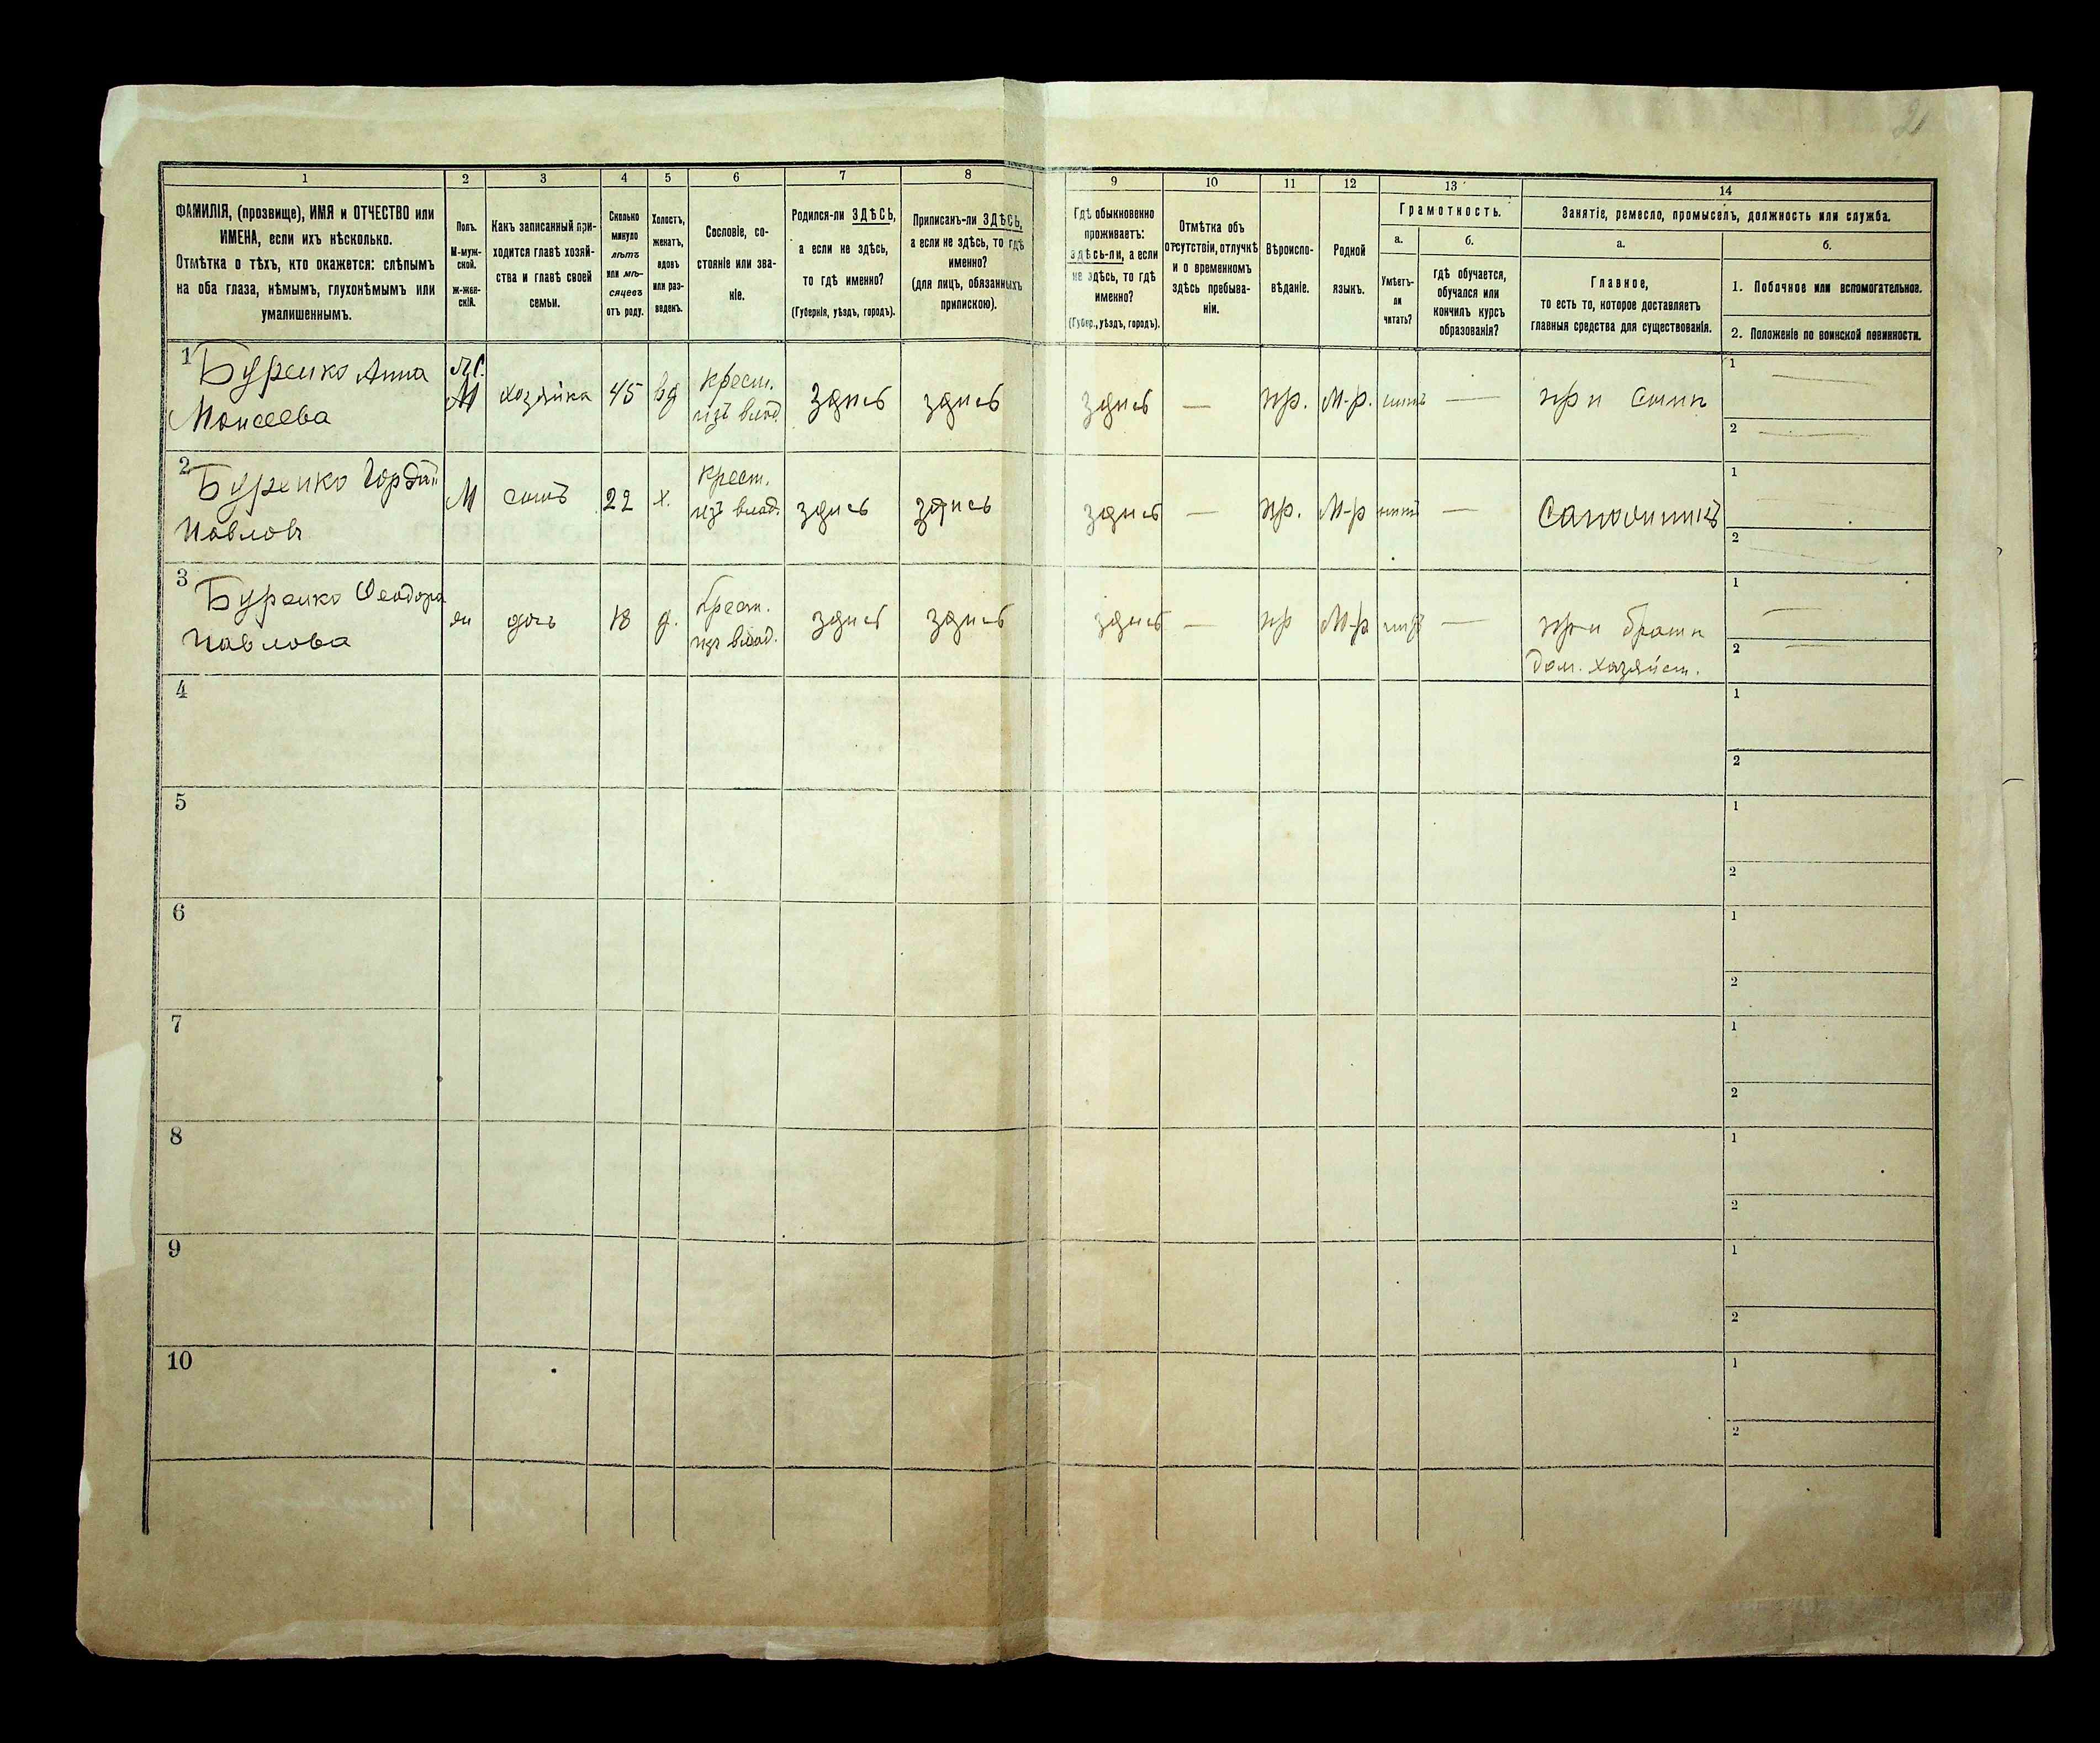 2
1 2 3 4 5 6 7 8 9 10 11 12 13 14
ФАМИЛІЯ, (прозвище), ИМЯ и ОТЧЕСТВО или
ИМЕНА, если ихъ нѣсколько.
Отмѣтка о тѣхъ, кто окажется: слѣпымъ
на оба глаза, нѣмымъ, глухонѣмымъ или
умалишеннымъ.
Полъ.
М-муж-
ской.
Ж-жен-
скій.
Какъ записанный при-
ходится главѣ хозяй-
ства и главѣ своей
семьи.
Сколько
минуло
лѣтъ
или мѣ-
сяцевъ
отъ роду.
Холостъ,
женатъ,
вдовъ
или раз-
веденъ.
Сословіе, со-
стояніе или зва-
ніе.
Родился-ли ЗДѢСЬ,
а если не здѣсь,
то гдѣ именно?
(Губернія, уѣздъ, городъ).
Приписанъ-ли ЗДѢСЬ,
а если не здѣсь, то гдѣ
именно?
(для лицъ, обязанныхъ
припискою).
Гдѣ обыкновенно
проживаетъ:
здѣсь-ли, а если
не здѣсь, то гдѣ
именно?
(Губер., уѣздъ, городъ).
Отмѣтка объ
отсутствіи, отлучкѣ
и о временномъ
здѣсь пребыва-
ніи.
Вѣроиспо-
вѣданіе.
Родной
языкъ.
Грамотность.
а.
Умѣетъ-
ли
читать?
б.
гдѣ обучается,
обучался или
кончилъ курсъ
образованія?
Занятіе, ремесло, промыселъ, должность или служба.
а.
Главное,
то есть то, которое доставляетъ
главныя средства для существованія.
б.
1. Побочное или вспомогательное.
2. Положеніе по воинской повинности.
1 Буренко Анна
Моисеева
М хозяйка 45 вд крест.
изъ влад.
здѣсь здѣсь здѣсь — пр. М-р. нѣтъ — при сынѣ
1
2
2 Буренко Гордѣй
Павловъ
М сынъ 22 х. крест.
изъ влад.
здѣсь здѣсь здѣсь — пр. М-р нѣтъ — Сапожникъ
1
2
3 Буренко Феодора
Павлова
дочь 18 д. крест.
изъ влад.
здѣсь здѣсь здѣсь — пр М-р нѣтъ — при братѣ
дом. хозяйст.
1
2
4
1
2
5
1
2
6
1
2
7
1
2
8
1
2
9
1
2
10
1
2